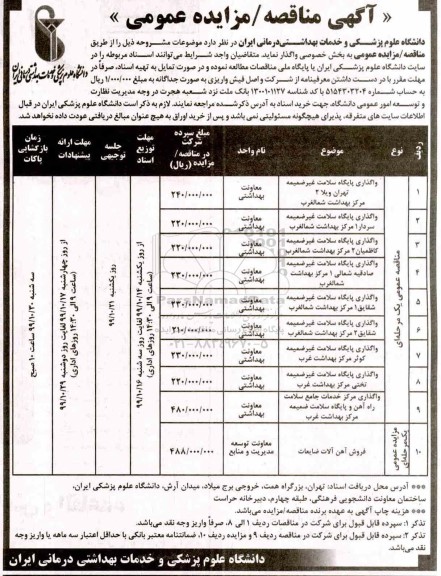 « آگهی مناقصه/مزایده عمومی »
دانشگاه علوم پزشکی و خدمات بهداشتی درمانی ایران
دانشگاه علوم پزشکی و خدمات بهداشتی‌درمانی ایران در نظر دارد موضوعات مشروحه ذیل را از طریق
مناقصه/مزایده عمومی به بخش خصوصی واگذار نماید. متقاضیان واجد شرایط می‌توانند اسناد مربوطه را در
سایت دانشگاه علوم پزشکی ایران یا پایگاه ملی مناقصات مطالعه نموده و در صورت تمایل به تهیه اسناد، صرفاً در
مهلت مقرر با در دست داشتن معرفینامه از شرکت و اصل فیش واریزی به صورت جداگانه به مبلغ ۱/۰۰۰/۰۰۰ ریال
به حساب شماره ۵۱۵۴۳۰۳۲۰۴ با کد شناسه ۱۳۰۰۱۰۱۱۲۷ بانک ملت نزد شعبه هجرت در وجه مدیریت نظارت
و توسعه امور عمومی دانشگاه، جهت خرید اسناد به آدرس ذکرشده مراجعه نمایند. لازم به ذکر است دانشگاه علوم پزشکی ایران در قبال
اطلاعات سایت های متفرقه، پذیرای هیچگونه مسئولیتی نمی باشد و پس از خرید اوراق به هیچ عنوان مبالغ دریافتی عودت داده نخواهد شد.
ردیف نوع موضوع نام واحد مبلغ سپرده شرکت در مناقصه/مزایده (ریال) مهلت توزیع اسناد جلسه توجیهی مهلت ارائه پیشنهادات زمان بازگشایی پاکات
مناقصه عمومی یک مرحله‌ای
۱ واگذاری پایگاه سلامت غیرضمیمه تهران ویلا ۲ مرکز بهداشت شمالغرب معاونت بهداشتی ۲۴۰/۰۰۰/۰۰۰
۲ واگذاری پایگاه سلامت غیرضمیمه سردار۱ مرکز بهداشت شمالغرب معاونت بهداشتی ۲۲۰/۰۰۰/۰۰۰
۳ واگذاری پایگاه سلامت غیرضمیمه کاظمیان۲ مرکز بهداشت شمالغرب معاونت بهداشتی ۲۲۰/۰۰۰/۰۰۰
۴ واگذاری پایگاه سلامت غیرضمیمه صادقیه شمالی ۱ مرکز بهداشت شمالغرب معاونت بهداشتی ۲۳۰/۰۰۰/۰۰۰
۵ واگذاری پایگاه سلامت غیرضمیمه شقایق۱ مرکز بهداشت شمالغرب معاونت بهداشتی ۲۳۰/۰۰۰/۰۰۰
۶ واگذاری پایگاه سلامت غیرضمیمه شقایق۲ مرکز بهداشت شمالغرب معاونت بهداشتی ۲۱۰/۰۰۰/۰۰۰
۷ واگذاری پایگاه سلامت غیرضمیمه کوثر مرکز بهداشت غرب معاونت بهداشتی ۲۳۰/۰۰۰/۰۰۰
۸ واگذاری پایگاه سلامت غیرضمیمه تختی مرکز بهداشت غرب معاونت بهداشتی ۲۲۰/۰۰۰/۰۰۰
۹ واگذاری مرکز خدمات جامع سلامت راه آهن و پایگاه سلامت ضمیمه مرکز بهداشت غرب معاونت بهداشتی ۴۸۰/۰۰۰/۰۰۰
۱۰ مزایده عمومی یک‌مرحله‌ای فروش آهن آلات ضایعات معاونت توسعه مدیریت و منابع ۴۸۸/۰۰۰/۰۰۰
از روز یکشنبه ۹۹/۱۰/۱۴ لغایت روز سه شنبه ۹۹/۱۰/۱۶ (ساعت ۹ الی ۱۴:۳۰ روزهای اداری)
روز یکشنبه ۹۹/۱۰/۲۱
از روز چهارشنبه ۹۹/۱۰/۱۷ لغایت روز دوشنبه ۹۹/۱۰/۲۹ (ساعت ۹ الی ۱۴:۳۰ روزهای اداری)
سه شنبه ۹۹/۱۰/۳۰ ساعت ۱۰ صبح
*** آدرس محل دریافت اسناد: تهران، بزرگراه همت، خروجی برج میلاد، میدان آرش، دانشگاه علوم پزشکی ایران،
ساختمان معاونت دانشجویی فرهنگی، طبقه چهارم، دبیرخانه حراست
*** هزینه چاپ آگهی به عهده برنده مناقصه/مزایده می‌باشد.
تذکر ۱: سپرده قابل قبول برای شرکت در مناقصات ردیف ۱ الی ۸، صرفاً واریز وجه نقد می‌باشد.
تذکر ۲: سپرده قابل قبول برای شرکت در مناقصه ردیف ۹ و مزایده ردیف ۱۰، ضمانتنامه معتبر بانکی با حداقل اعتبار سه ماهه یا واریز وجه
نقد می‌باشد.
دانشگاه علوم پزشکی و خدمات بهداشتی درمانی ایران